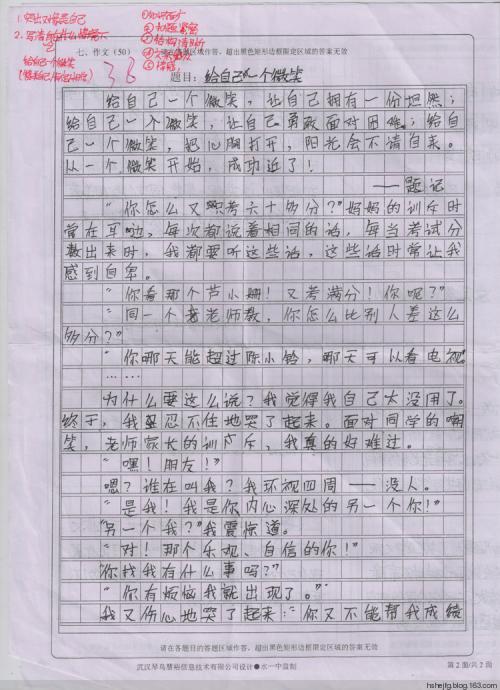 1.突出对象是自己
2.写清自己什么情况下
给自己一个微笑
36
七、作文（50） 请在各题目的答题区域作答，超出黑色矩形边框限定区域的答案无效
题目：给自己一个微笑
给自己一个微笑，让自己拥有一份坦然；
给自己一个微笑，让自己勇敢面对困难；给自
己一个微笑，把心胸打开，阳光会不请自来。
从一个微笑开始，成功近了！
——题记
“你怎么又只考六十多分？”妈妈的训斥时
常在耳边，每次都说着相同的话，每当考试分
数出来时，我都要听这些话，这些话时常让我
感到自卑。
“你看那个芦小姗！又考满分！你呢？”
“同一个老师教，你怎么比别人差这么
多分？”
“你哪天能超过陈小铃，哪天可以看电视
……
为什么要这么说？我觉得我自己太没用了。
终于，我忍不住地哭了起来。面对同学的嘲
笑，老师家长的训斥，我真的好难过。
“嘿！朋友！”
嗯？谁在叫我？我环视四周——没人。
“是我！我是你内心深处的另一个你！”
“另一个我？”我震惊道。
“对！那个乐观、自信的你！”
“你找我有什么事吗？”
“你有烦恼我就出现了。”
我又伤心地哭了起来：“你又不能帮我成绩
请在各题目的答题区域作答，超出黑色矩形边框限定区域的答案无效
武汉琴鸟慧裕信息技术有限公司设计●水一中监制
第2面/共2面
hshejfg.blog.163.com